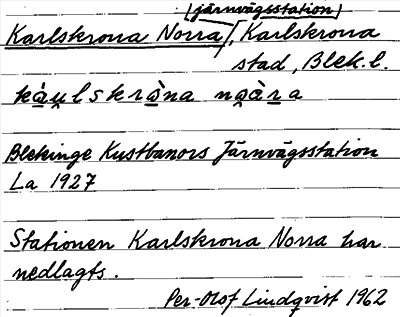 (järnvägsstation)
Karlskrona Norra, Karlskrona
stad, Blek. l.
kàu̯lskrò̱na nọà̱ra
Blekinge Kustbanors Järnvägsstation
La 1927
Stationen Karlskrona Norra har
nedlagts.
Per-Olof Lindqvist 1962